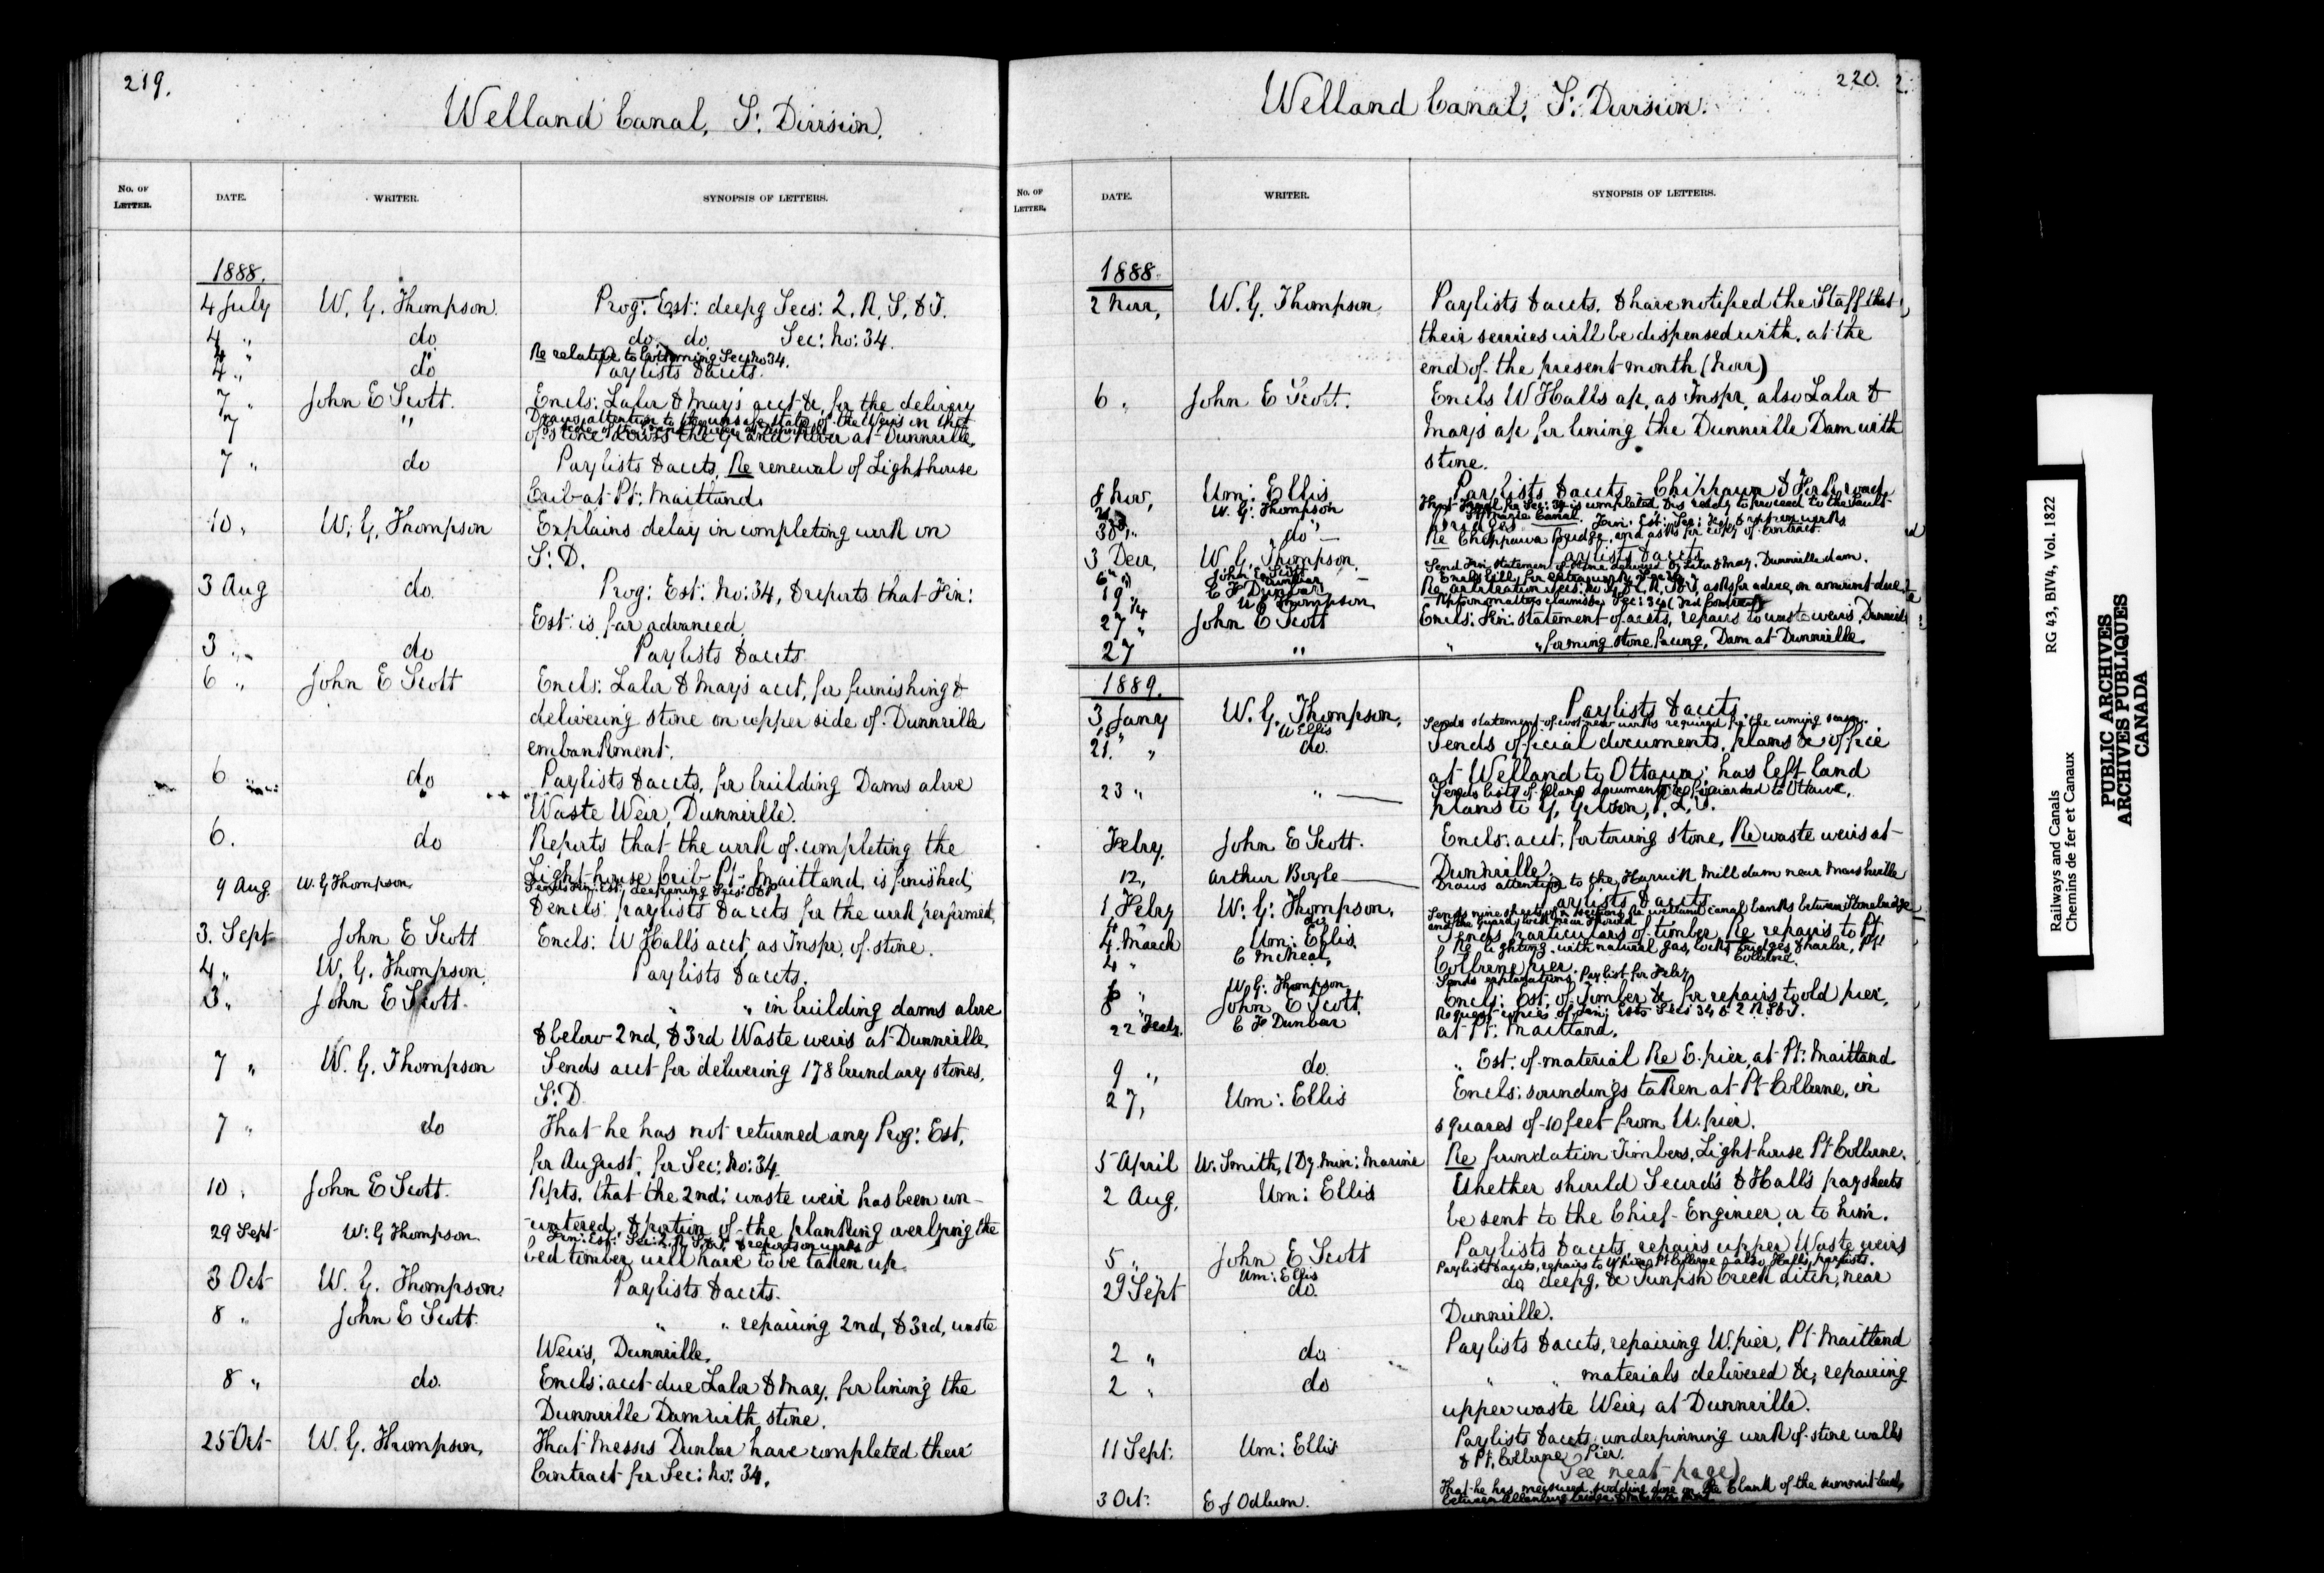 219.
Welland Canal, S: Division.
No. OF LETTER.
DATE.
WRITER.
SYNOPSIS OF LETTERS.
1888.
4 July W. G. Thompson. Prog: Est: deepg Secs: 2, R, S, & T.
4 " do do do Sec: No: 34.
4 " Re relative to bottoming Sec No 34.
4 " do Paylists & accts.
7 " John E Scott. Encls: Lalor & May's acct &c, for the delivery
7 " Draws attention to the unsafe state of the Weirs in the
of stone across the Grand River at Dunnville.
7 " do Paylists & accts, Re renewal of Lighthouse
Crib at Pt: Maitland.
10 " W. G. Thompson Explains delay in completing work on
S: D.
3 Aug do. Prog: Est: No: 34, & reports that Fin:
Est: is far advanced.
3 " do Paylists & accts.
6 " John E Scott Encls: Lalor & May's acct, for furnishing &
delivering stone on upper side of Dunnville
embankment.
6 " do Paylists & accts, for building Dams above
Waste Weir, Dunnville.
6. do Reports that the work of completing the
Light-house Crib Pt: Maitland, is finished,
9 Aug. W. G Thompson. Sends Fin: Est, deepening Secs:
& encls: paylists & accts for the work performed.
3. Sept John E Scott Encls: W Hall's acct, as Inspr, of stone.
4 " W. G. Thompson. Paylists & accts.
3 " John E Scott. " " in building dams above
& below 2nd, & 3rd Waste weirs at Dunnville.
7 " W. G. Thompson Sends acct for delivering 178 boundary stones,
S: D.
7 " do That he has not returned any Prog: Est,
for August, for Sec: No: 34.
10 " John E Scott. Repts, that the 2nd: waste weir has been un-
-watered, & portion of the planking overlying the
29 Sept W: G Thompson. Fin: Est: Sec: 2, R, S, & T, & reports on works
bed timber will have to be taken up.
3 Oct W. G. Thompson. Paylists & accts.
8 " John E Scott. " " repairing 2nd, & 3rd, waste
Weirs, Dunnville.
8 " do. Encls: acct due Lalor & May, for lining the
Dunnville Dam with stone.
25 Oct W. G. Thompson, That Messrs Dunbar have completed their
Contract for Sec: No: 34.
220.
Welland Canal, S: Division.
No. OF LETTER.
DATE.
WRITER.
SYNOPSIS OF LETTERS.
1888.
2 Novr, W. G. Thompson Paylists & accts, & have notified the Staff that
their services will be dispensed with, at the
end of the present month (Novr)
6 " John E Scott. Encls W Hall's a/c, as Inspr, also Lalor &
May's a/c for lining the Dunnville Dam with
stone.
8 Nov, Wm: Ellis Paylists & accts - Chippawa & Fork road
W. G. Thompson That Final for Sec: 34 is completed & is ready to proceed to the Sault
Ste Marie Canal.
bridges.
30 " do Re Chippawa Bridge, and asks for copy of Contract.
3 Decr, W. G. Thompson Paylists & accts
6 " John E Scott Send Fin: statement of stone delivered by Lalor & May, Dunnville dam.
19 " E F Dunbar
W G Thompson
27 " John E Scott Encls: Fin: statement of accts, repairs to waste weirs, Dunnville
27 " " " forming stone facing, Dam at Dunnville.
1889.
3 Jany W. G. Thompson, Paylists & accts.
W Ellis Sends statement of works required for the coming season.
21. " do. Sends official documents, plans &c office
at Welland to Ottawa; has left land
23 " " Sends lists of plans documents &c forwarded to Ottawa.
plans to G, P. L. S.
Febry. John E Scott. Encls: acct, for towing stone, Re waste weirs at
Dunnville.
12, Arthur Boyle Draws attention to the mill dam near Marshville
1 Febry W. G. Thompson. Paylists & accts
Sends nine sheets of x sections Re Welland canal banks between Stonebridge
and the guard lock near
4. March Wm: Ellis. Sends particulars of timber, Re repairs to Pt
4 " C McNeal, Re Lighting with natural gas, locks, bridges & harbor, Pt: Colborne.
Colborne pier.
W. G. Thompson Sends explanations Paylist for Febry
8 " John E Scott. Encls: Est, of timber &c, for repairs to old pier,
22 Feby. E F Dunbar Request copies of Fin: Ests Secs 34 & 2 R S & T.
at Pt: Maitland.
9 " do. " Est: of material Re E. pier, at Pt: Maitland
27, Wm: Ellis Encls: soundings taken at Pt Colborne, in
squares of 10 feet from W. pier.
5 April W. Smith, (Dy. Min: Marine Re foundation Timbers, Light-house Pt Colborne.
2 Aug. Wm: Ellis Whether should Secord's & Hall's pay sheets
be sent to the Chief Engineer, or to him.
5 " John E Scott Paylists & accts, repairs upper Waste weirs
Wm: Ellis Paylists & accts, repairs to W pier, Pt Colborne, also Hall's paylists.
29 Sept do. do, deepg, &c Sunfish Creek ditch, near
Dunnville.
2 " do Paylists & accts, repairing W. pier, Pt Maitland
2 " do " " materials delivered &c, repairing
upper waste Weir, at Dunnville.
11 Sept: Wm: Ellis Paylists & accts, underpinning work of stone walls
& Pt, Colborne Pier.
(See next page)
3 Oct: E J Odlum. That he has measured sodding done on the E bank of the summit level,
RG 43, BIV4, Vol. 1822
Railways and Canals
Chemins de fer et Canaux
PUBLIC ARCHIVES
ARCHIVES PUBLIQUES
CANADA